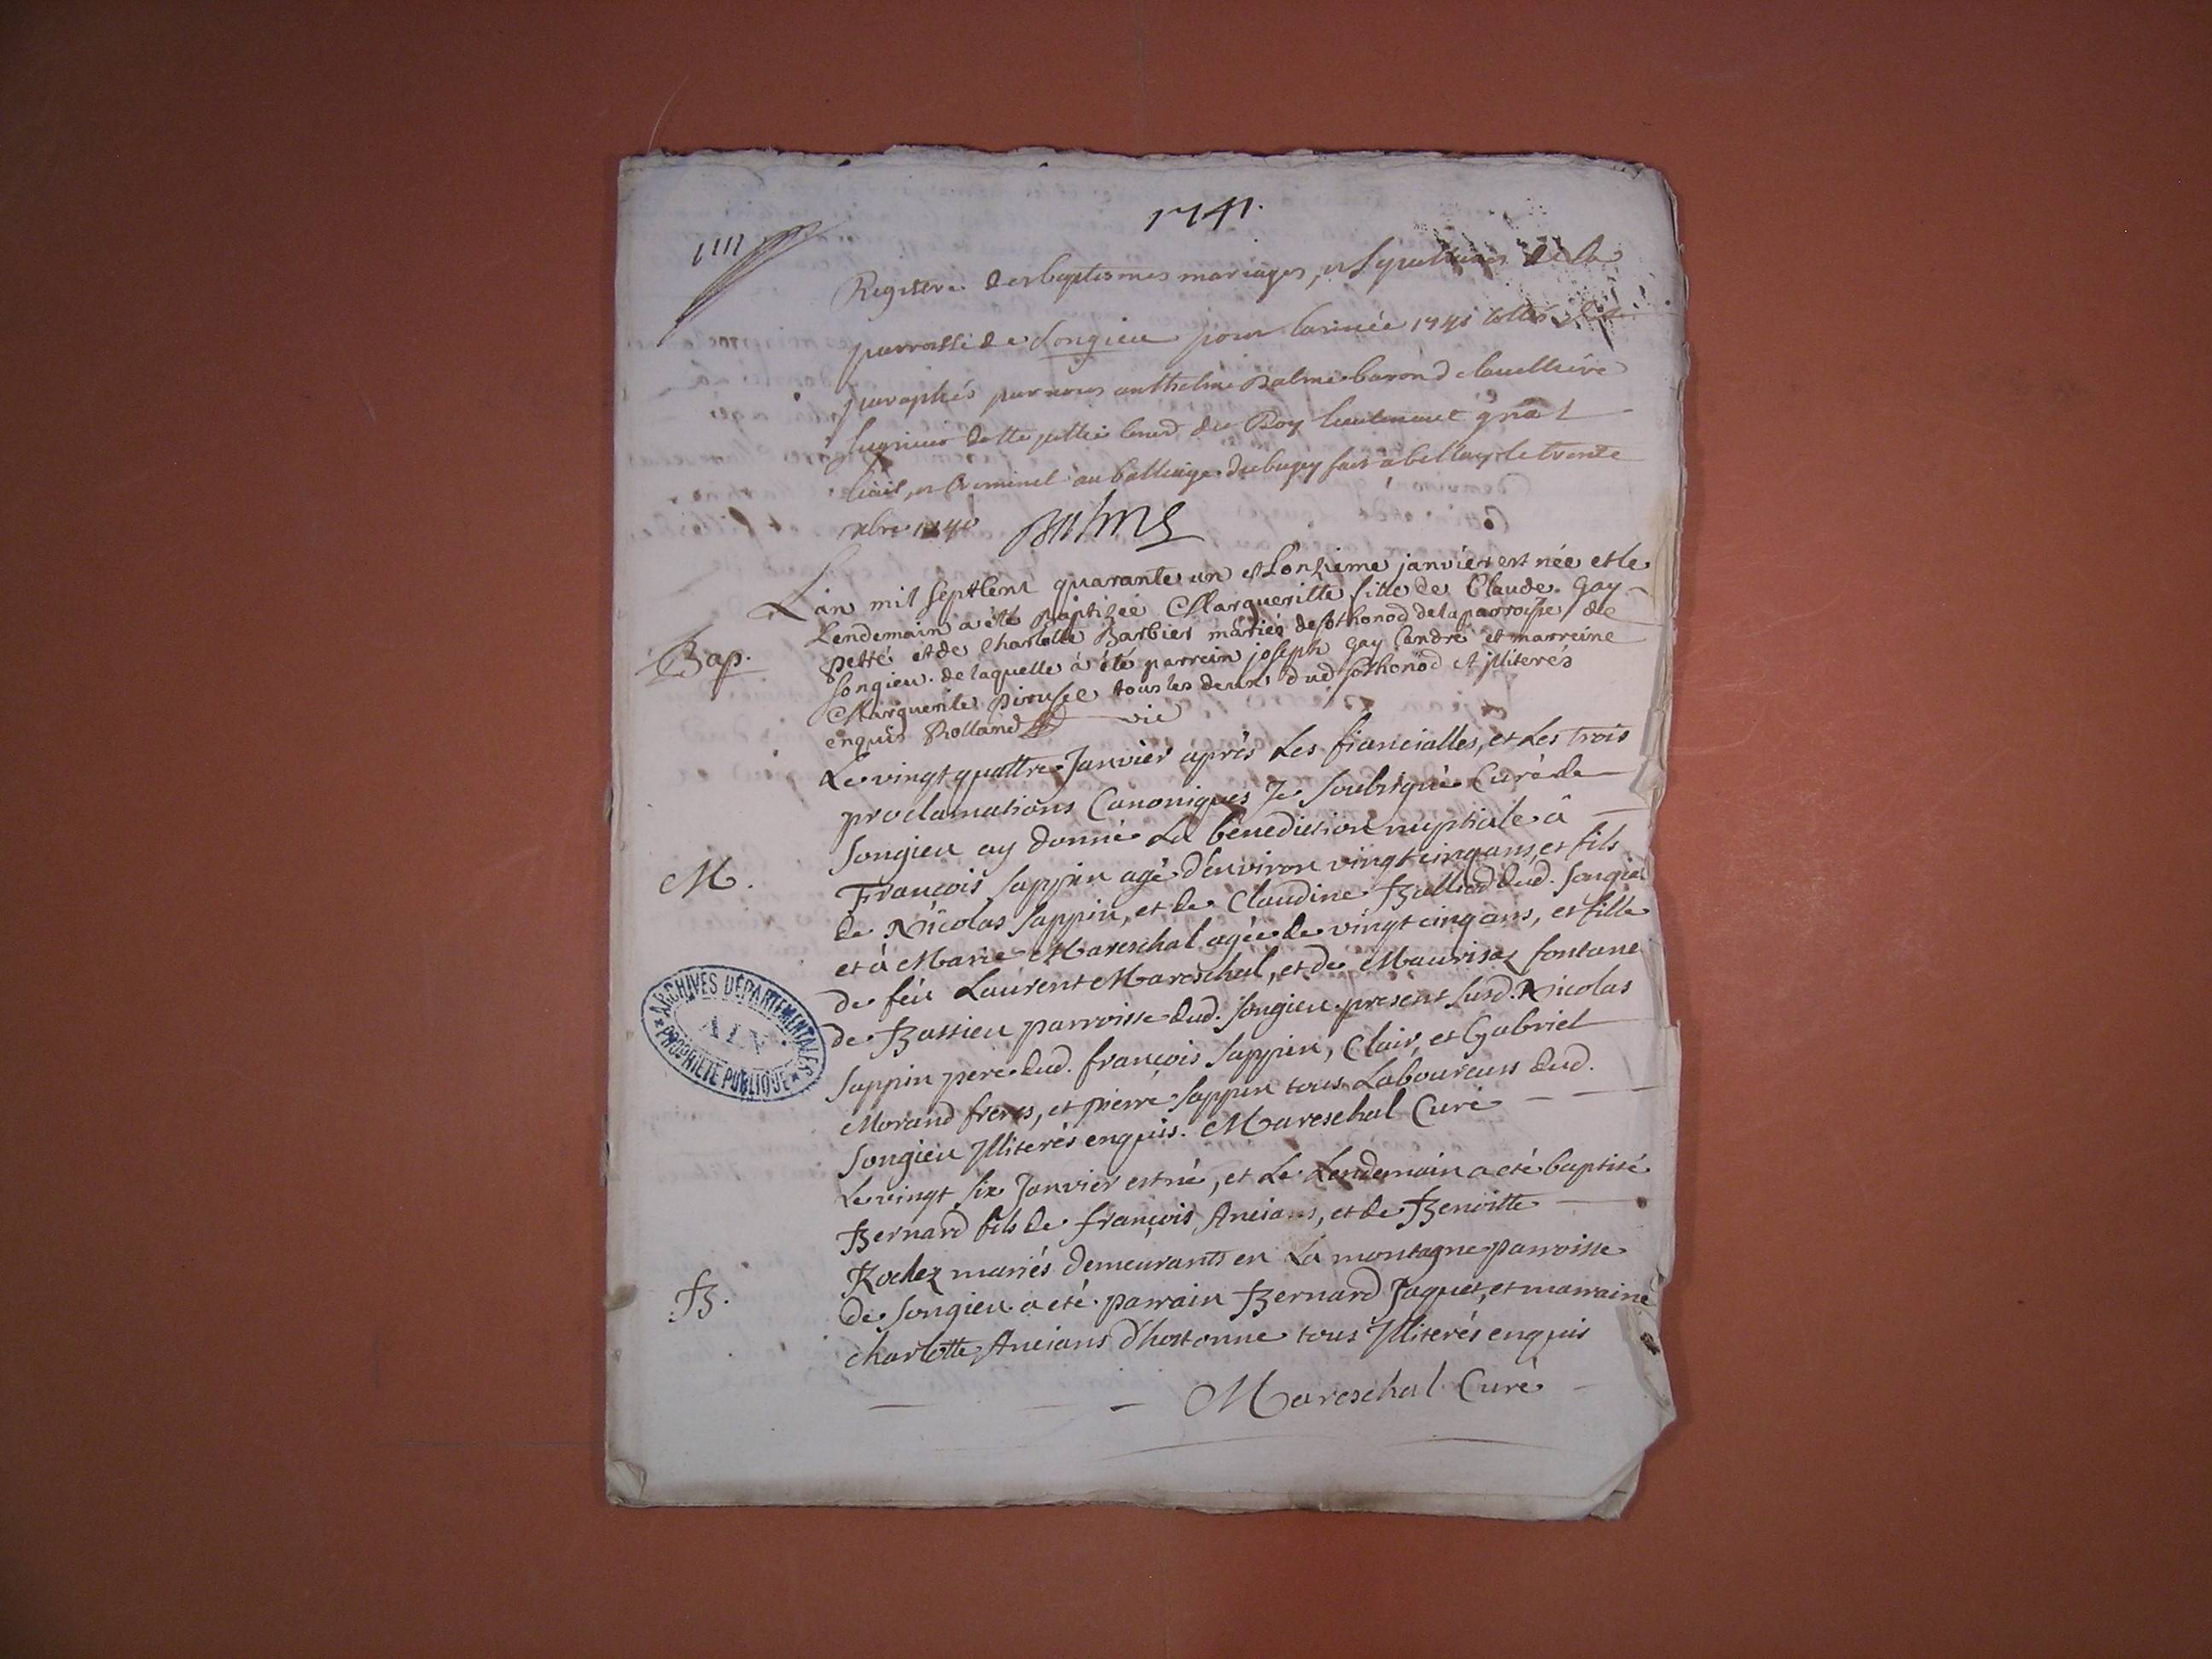 1741.
Registre des baptesmes mariages, et sepultures de la
parroisse de Songieu pour lannée 1741 cottés et
paraphés par nous anthelme Balme baron
du Roy lieutenant gnâl
et Criminel au balliage du bugey fait à belley le trente
xbre 1740 Balme
Lan mil sept Cent quarante un et Lonzieme janvier est née et le
Lendemain a été Baptizée Margueritte fille de Claude Gay
petté et de Charlotte Barbier mariés de sothonod de la parroisse de
Bap.
songieu. de laquelle à été parrein joseph Gay Candre et marreine
Marguerite tous les deux dud sothonod et jlliterés
enquis Rolland vic
Le vingt quattre Janvier aprés Les fiancialles, et Les trois
proclamations Canoniques Je soubsigné Curé de
Songieu ay donné La benediction nuptiale â
François Sappin agé d'environ vingt cinq ans, et fils
M.
de Nicolas Sappin, et de Claudine Balliod dud. Songieu
et à Marie Mareschal agée de vingt cinq ans, et fille
de feu Laurent Mareschal, et de Maurisaz fontane
de Bassieu parroisse dud. Songieu. present susd. Nicolas
Sappin pere dud. françois Sappin, Clair, et Gabriel
Morand freres, et pierre Sappin tous Laboureurs dud.
Songieu Jlliterés enquis. Mareschal Curé
ARCHIVES DÉPARTEMENTALES
AIN
PROPRIÉTÉ PUBLIQUE
Le vingt six Janvier est né, et Le Lendemain a eté baptisé
Bernard fils de françois Ancians, et de Benoitte
Rochez mariés demeurants en La montagne parroisse
B.
de Songieu. a eté parrain Bernard Jaquet, et marraine
charlotte Ancians d'hostonne tous Jlliterés enquis
Mareschal Curé